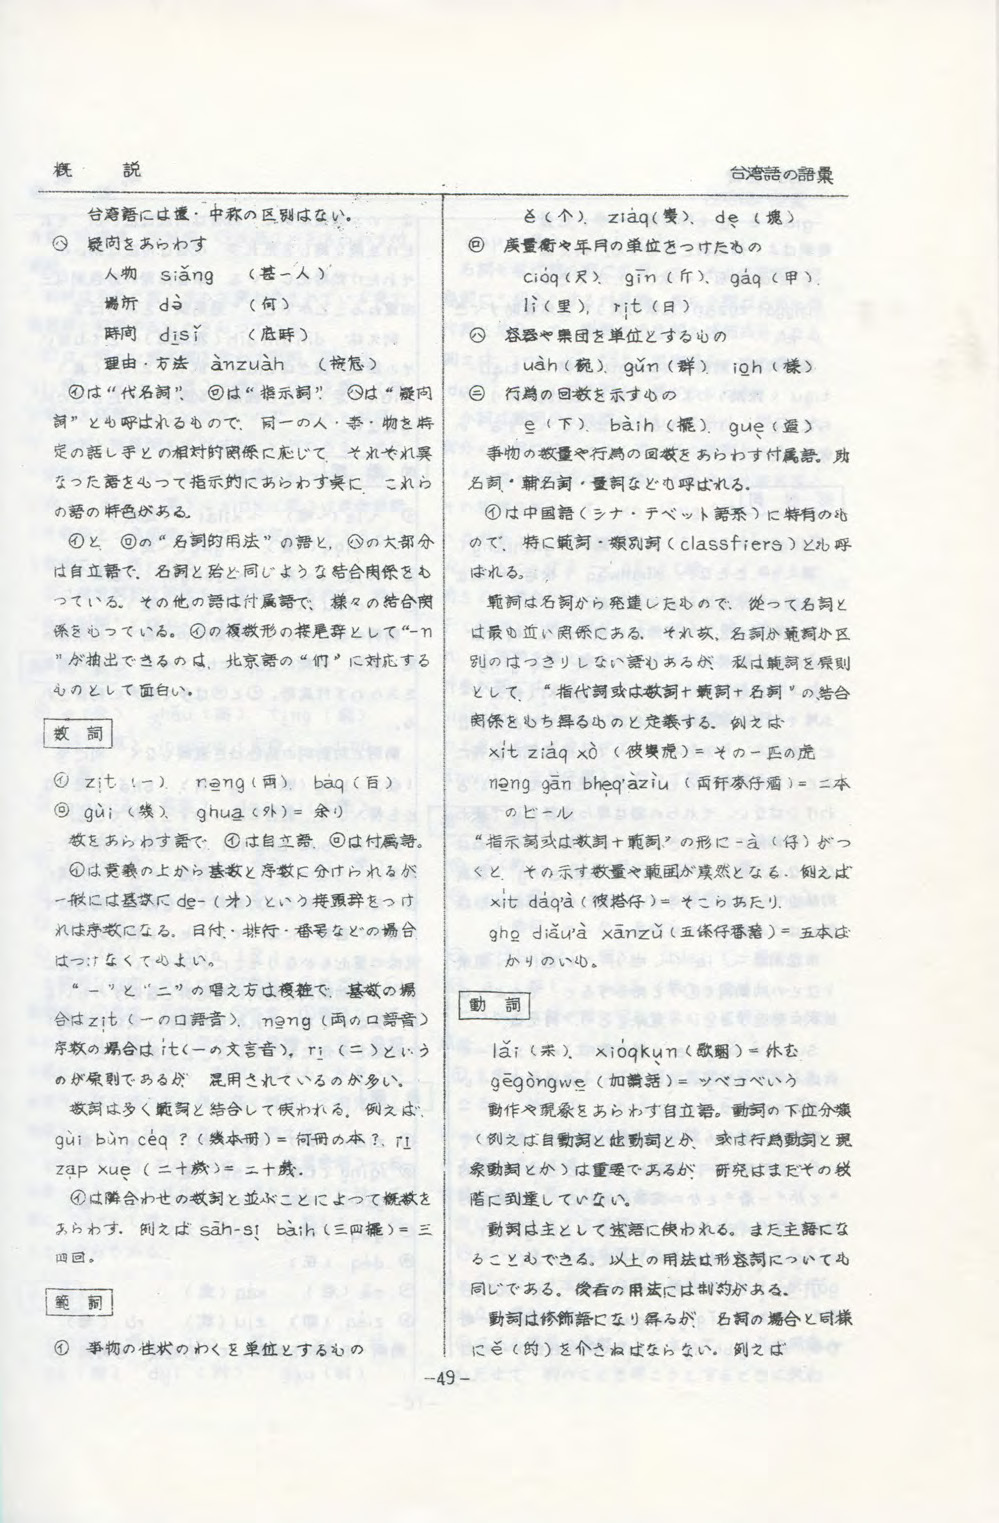 概　説
台湾語の語彙
台湾語には遠・中称の区別はない。
㋩ 疑問をあらわす
人物 siǎng （甚一人）
場所 dà （何）
時間 dịsǐ （底時）
理由・方法 ànzuàh （按怎）
㋑は“代名詞”、㋺は“指示詞”、㋩は“疑問
詞”とも呼ばれるもので、同一の人・事・物を特
定の話し手との相対的関係に応じて、それぞれ異
なった語をもって指示的にあらわす点に、これら
の語の特色がある。
㋑と、㋺の“名詞的用法”の語と、㋩の大部分
は自立語で、名詞と殆と同じような結合関係をも
っている。その他の語は付属語で、様々の結合関
係をもっている。㋑の複数形の接尾辞として“-n
”が抽出できるのは、北京語の“们”に対応する
ものとして面白い。
数　詞
㋑ zịt（一）、nəng（両）、báq（百）
㋺ gùi（幾）、ghuạ（外）＝余り
数をあらわす語で、㋑は自立語、㋺は付属語。
㋑は意義の上から基数と序数に分けられるが、
一般には基数にdẹ-（才）という接頭辞をつけ
れば序数になる。日付・排行・番号などの場合
はつけなくてもよい。
“一”と“二”の唱え方は複雑で、基数の場
合はzịt（一の口語音）、nəng（両の口語音）
序数の場合はít（一の文言音）、rị（二）という
のが原則であるが、混用されているのが多い。
数詞は多く範詞と結合して使われる。例えば、
gùi bùn céq？（幾本冊）＝何冊の本？、rị
zạp xuẹ（二十歳）＝二十歳。
㋑は隣合わせの数詞と並ぶことによって概数を
あらわす。例えば sāh-sị bàih（三四擺）＝三
四回。
範　詞
㋑ 事物の性状のわくを単位とするもの
ě（个）、ziáq（隻）、dẹ（塊）
㋺ 度量衡や年月の単位をつけたもの
cióq（尺）、gīn（斤）、gáq（甲）、
lì（里）、rịt（日）
㋩ 容器や集団を単位とするもの
uàh（碗）、gǔn（群）、iọh（様）
㋥ 行為の回数を示すもの
ẹ（下）、bàih（擺）、guẹ（過）
事物の数量や行為の回数をあらわす付属語。助
名詞・輔名詞・量詞なども呼ばれる。
㋑は中国語（シナ・チベット語系）に特有のも
ので、特に範詞・類別詞（classfiers）とも呼
ばれる。
範詞は名詞から発達したもので、従って名詞と
は最も近い関係にある。それ故、名詞か範詞か区
別のはっきりしない語もあるが、私は範詞を原則
として、“指代詞或は数詞＋範詞＋名詞”の結合
関係をもち得るものと定義する。例えば
xít ziáq xò（彼隻虎）＝その一匹の虎
nəng gān bhẹq'àzìu（両矸麥仔酒）＝二本
のビール
“指示詞或は数詞＋範詞”の形に -à（仔）がつ
くと、その示す数量や範囲が漠然となる。例えば
xít dáq'à（彼搭仔）＝そこらあたり、
ghọ diǎu'à xānzǔ（五条仔番藷）＝五本ば
かりのいも。
動　詞
lǎi（来）、xióqkụn（歇睏）＝休む
gēgòngwẹ（加講話）＝ツベコベいう
動作や現象をあらわす自立語。動詞の下位分類
（例えば自動詞と他動詞とか、或は行為動詞と現
象動詞とか）は重要であるが、研究はまだその段
階に到達していない。
動詞は主として述語に使われる。また主語にな
ることもできる。以上の用法は形容詞についても
同じである。後者の用法には制約がある。
動詞は修飾語になり得るが、名詞の場合と同様
にě（的）を介さねばならない。例えば
-49-